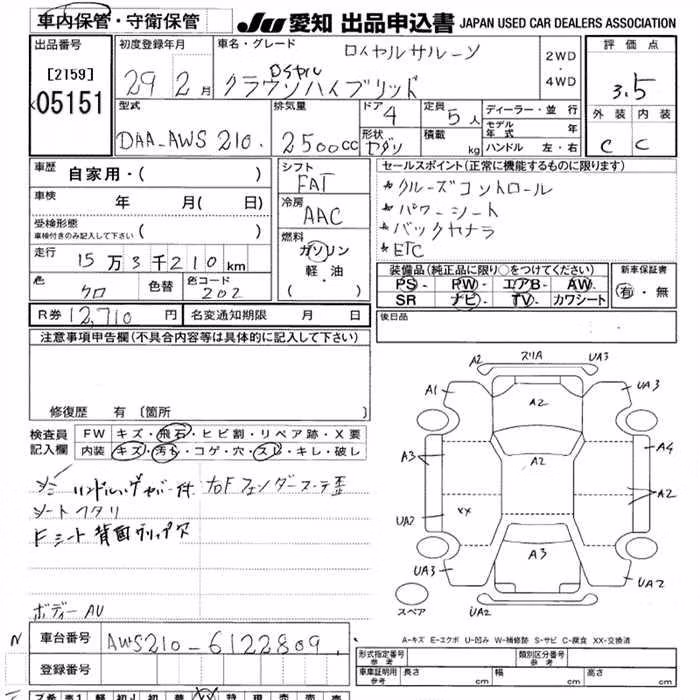 車内保管・守衛保管 JU 愛知 出品申込書 JAPAN USED CAR DEALERS ASSOCIATION
出品番号 初度登録年月 車名・グレード ロイヤルサルーン 2WD・4WD 評価点
[2159] 29 2月 クラウンハイブリッド ロイヤル 3.5
05151
型式 排気量 ドア 4 定員 5人 ディーラー・並行 外装 内装
モデル年式 年
DAA-AWS210. 2500cc 形状 セダン 積載 kg ハンドル 左・右 C C
車歴 自家用・( ) シフト FAT セールスポイント(正常に機能するものに限ります)
車検 年 月( 日) 冷房 AAC クルーズコントロール
パワーシート
受検形態 車検付きのみ記入して下さい ( ) 燃料 バックカメラ
ガソリン ETC
走行 15万3千210km 軽・油 装備品(純正品に限り○をつけてください) 新車保証書
( ) PS・ PW・ エアB・ AW・ 有・無
色 クロ 色替 色コード 202 SR ナビ・ TV・ カワシート
R券 12,710円 名変通知期限 月 日 後日品
注意事項申告欄(不具合内容等は具体的に記入して下さい)
修復歴 有 〔箇所
検査員記入欄 FW キズ・飛石・ヒビ割・リペア跡・X要
内装 キズ・汚れ・コゲ・穴・スレ・キレ・破レ
A2 スリA UA3
A1 A2 UA3
A3 A2 A4
A2
UA2 XX
UA3 A3 UA2
スペア UA2
シミ ハンドル 右Fフェンダー 歪
シート ヘタリ
Fシート背面
ボディーAU
A-キズ E-エクボ U-凹み W-補修跡 S-サビ C-腐食 XX-交換済
N 車台番号 AWS210-6122809
形式指定番号 参考 類別区分番号 参考
登録番号 車庫証明用 参考 長さ cm 幅 cm 高さ cm